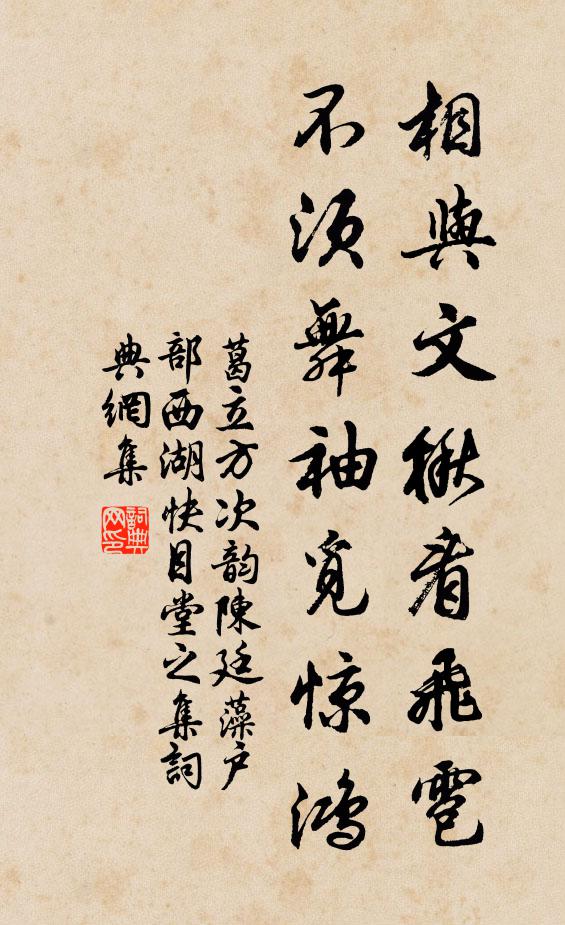 相與文楸看飛雹
不須舞袖覓惊鴻
葛立方次韵陳廷藻户
部西湖快目堂之集詞
典網集
詞典网印